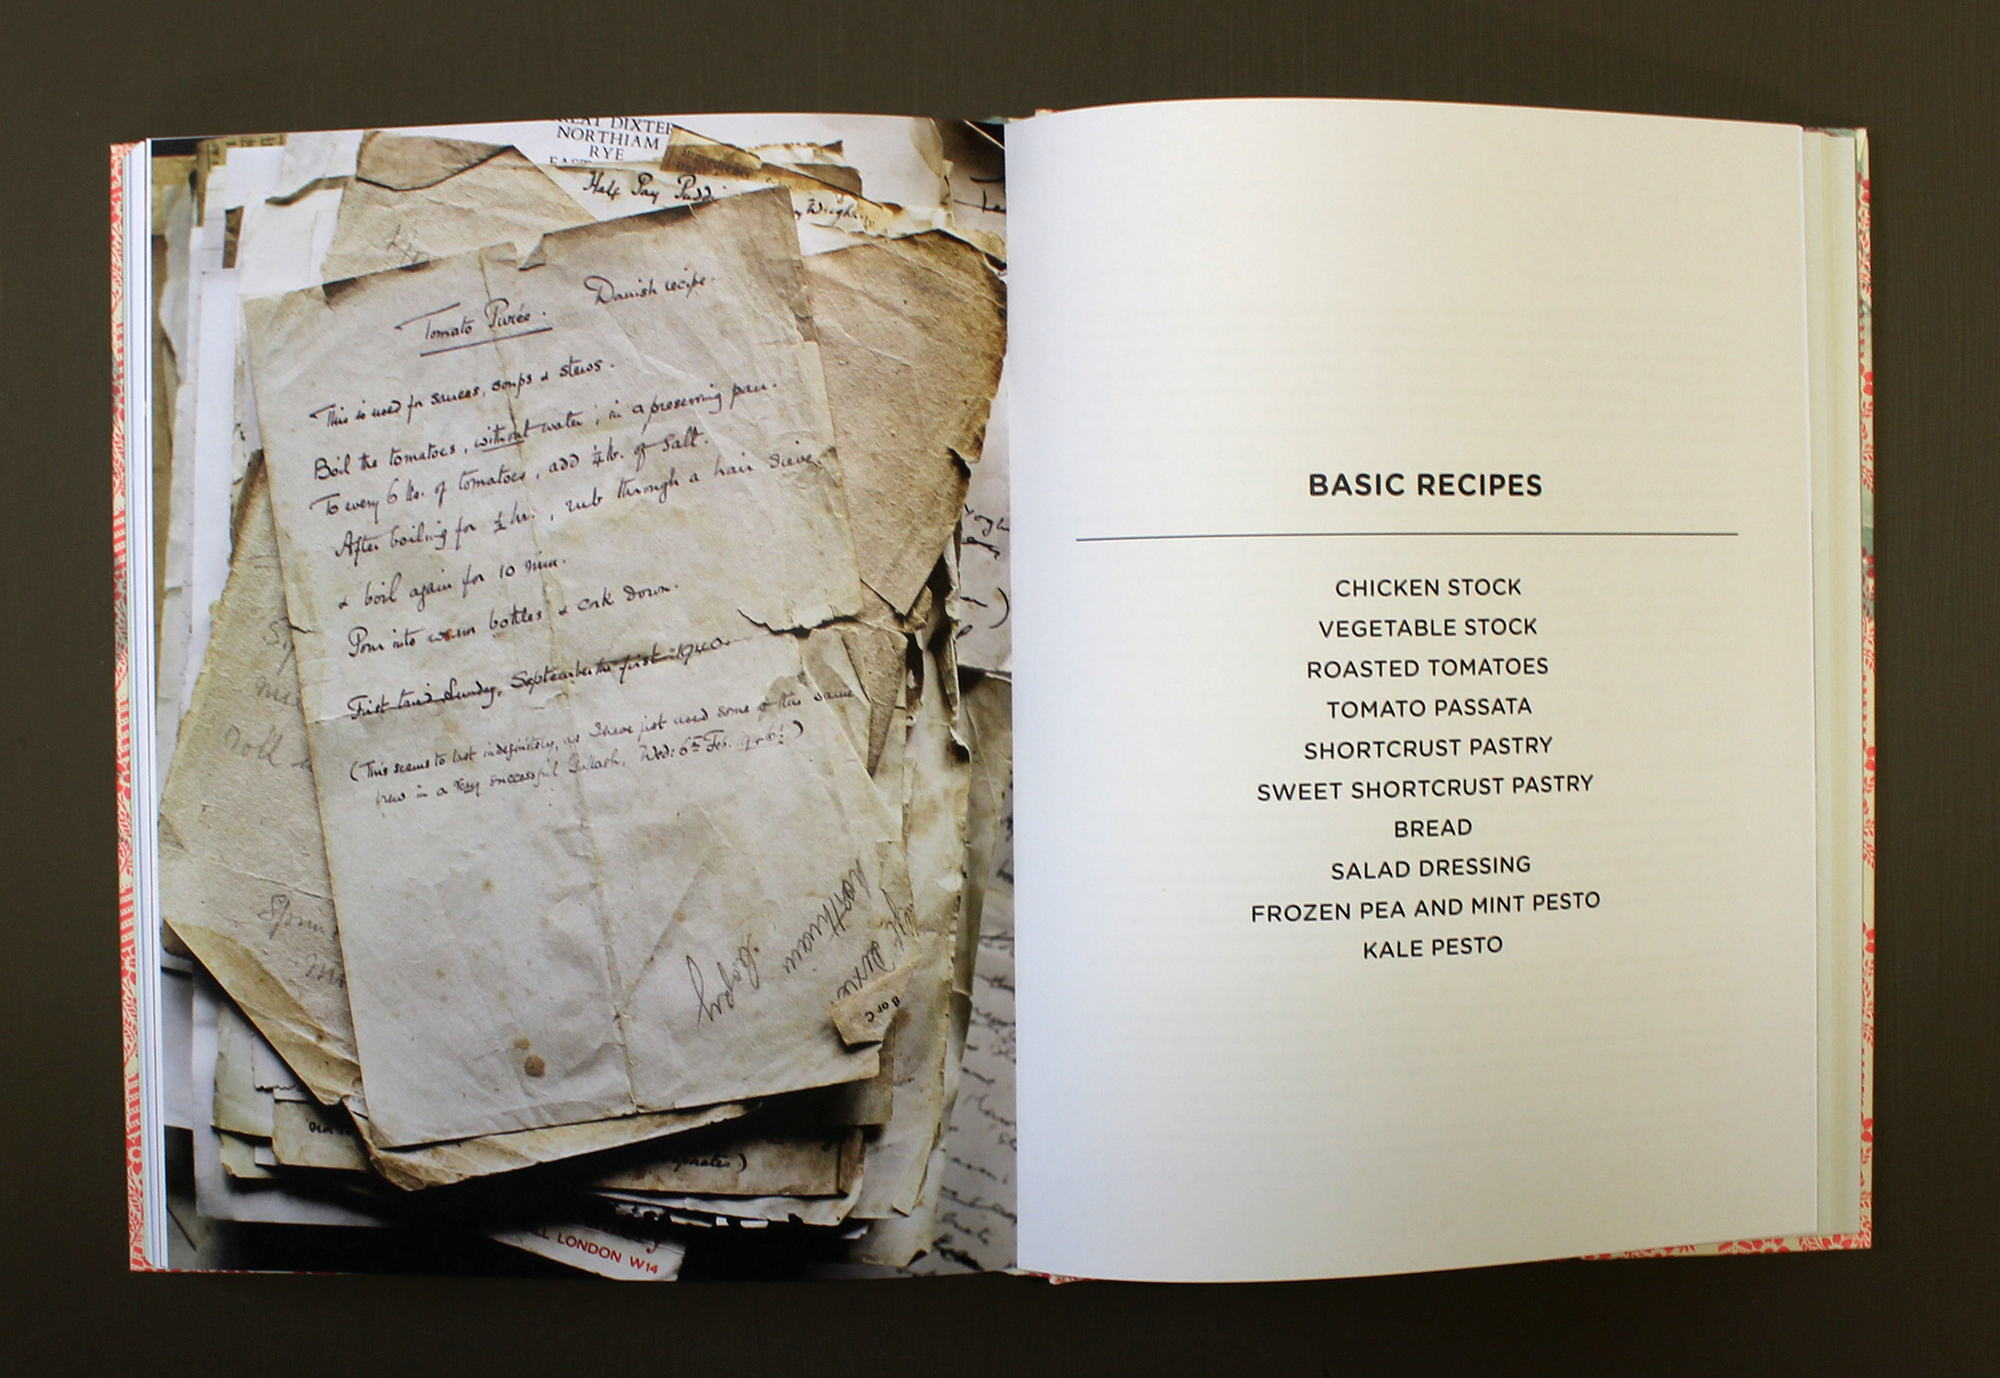 GREAT DIXTER
NORTHIAM
RYE
Half Pay Pudd
Tomato Purée. Danish recipe.
This is used for sauces, soups & stews.
Boil the tomatoes, without water; in a preserving pan.
To every 6 lbs. of tomatoes, add ¼ lb. of salt.
After boiling for ½ hr., rub through a hair sieve
& boil again for 10 min.
Pour into warm bottles & cork down.
First tried Sunday, September the first 1940.
(This seems to last indefinitely, as I have just used some of this same
brew in a very successful Gulash, Wed: 6th Feb. 1946!)
roll
Northiam
Copy
B or C
LONDON W14
BASIC RECIPES
CHICKEN STOCK
VEGETABLE STOCK
ROASTED TOMATOES
TOMATO PASSATA
SHORTCRUST PASTRY
SWEET SHORTCRUST PASTRY
BREAD
SALAD DRESSING
FROZEN PEA AND MINT PESTO
KALE PESTO